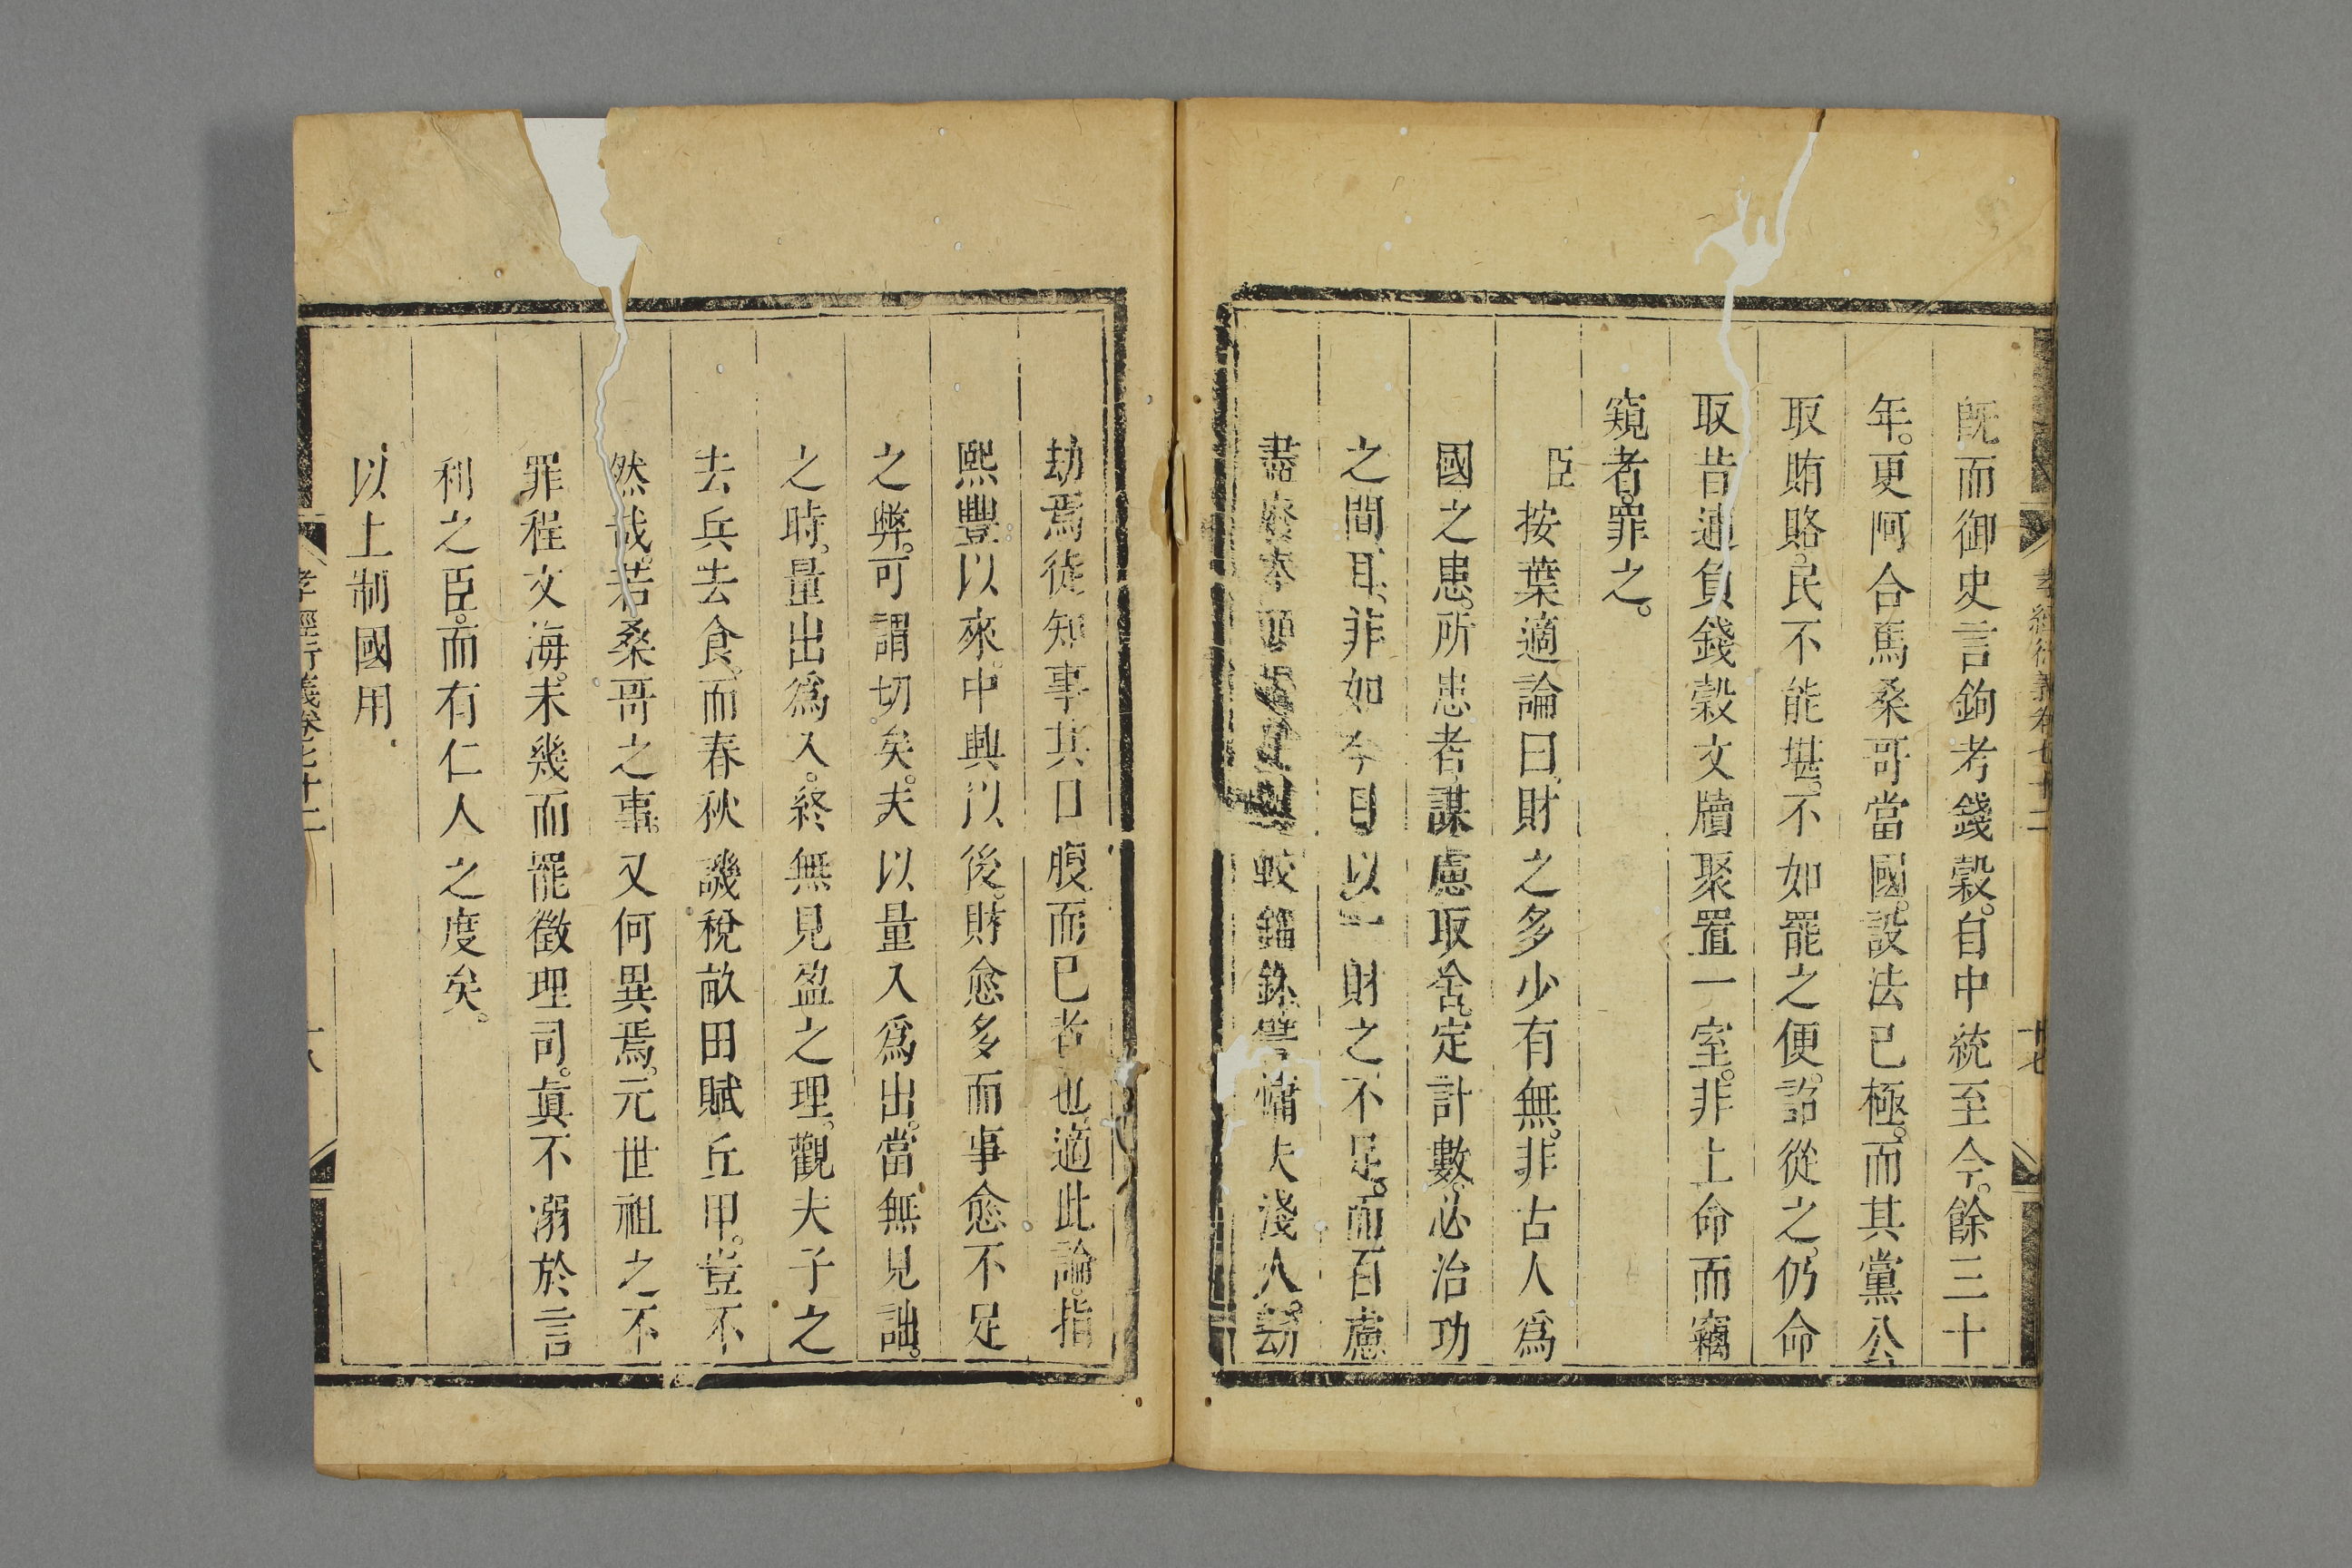 孝經衍義卷七十二
十七
既而御史言鉤考錢穀。自中統至今。餘三十
年。更阿合馬桑哥當國。設法已極。而其黨公
取賄賂。民不能堪。不如罷之便。詔從之。仍命
取昔逋負錢穀文牘聚置一室。非上命而竊
窺者。罪之。
臣按葉適論曰。財之多少有無。非古人爲
國之患。所患者。謀慮取舍。定計數。必治功
之間耳。非如今日以一財之不足。而百慮
盡廢奉較錙銖譬慵夫淺人。劫
劫焉徒知事其口腹而已者也適此論。指
熙豐以來。中興以後。財愈多而事愈不足
之弊。可謂切矣。夫以量入爲出。當無見詘。
之時。量出爲入。終無見盈之理。觀夫子之
去兵去食。而春秋譏稅畝田賦丘甲。豈不
然哉。若桑哥之事。又何異焉。元世祖之不
罪程文海。未幾而罷徵理司。眞不溺於言
利之臣。而有仁人之度矣。
以上制國用
孝經衍義卷七十二
十八